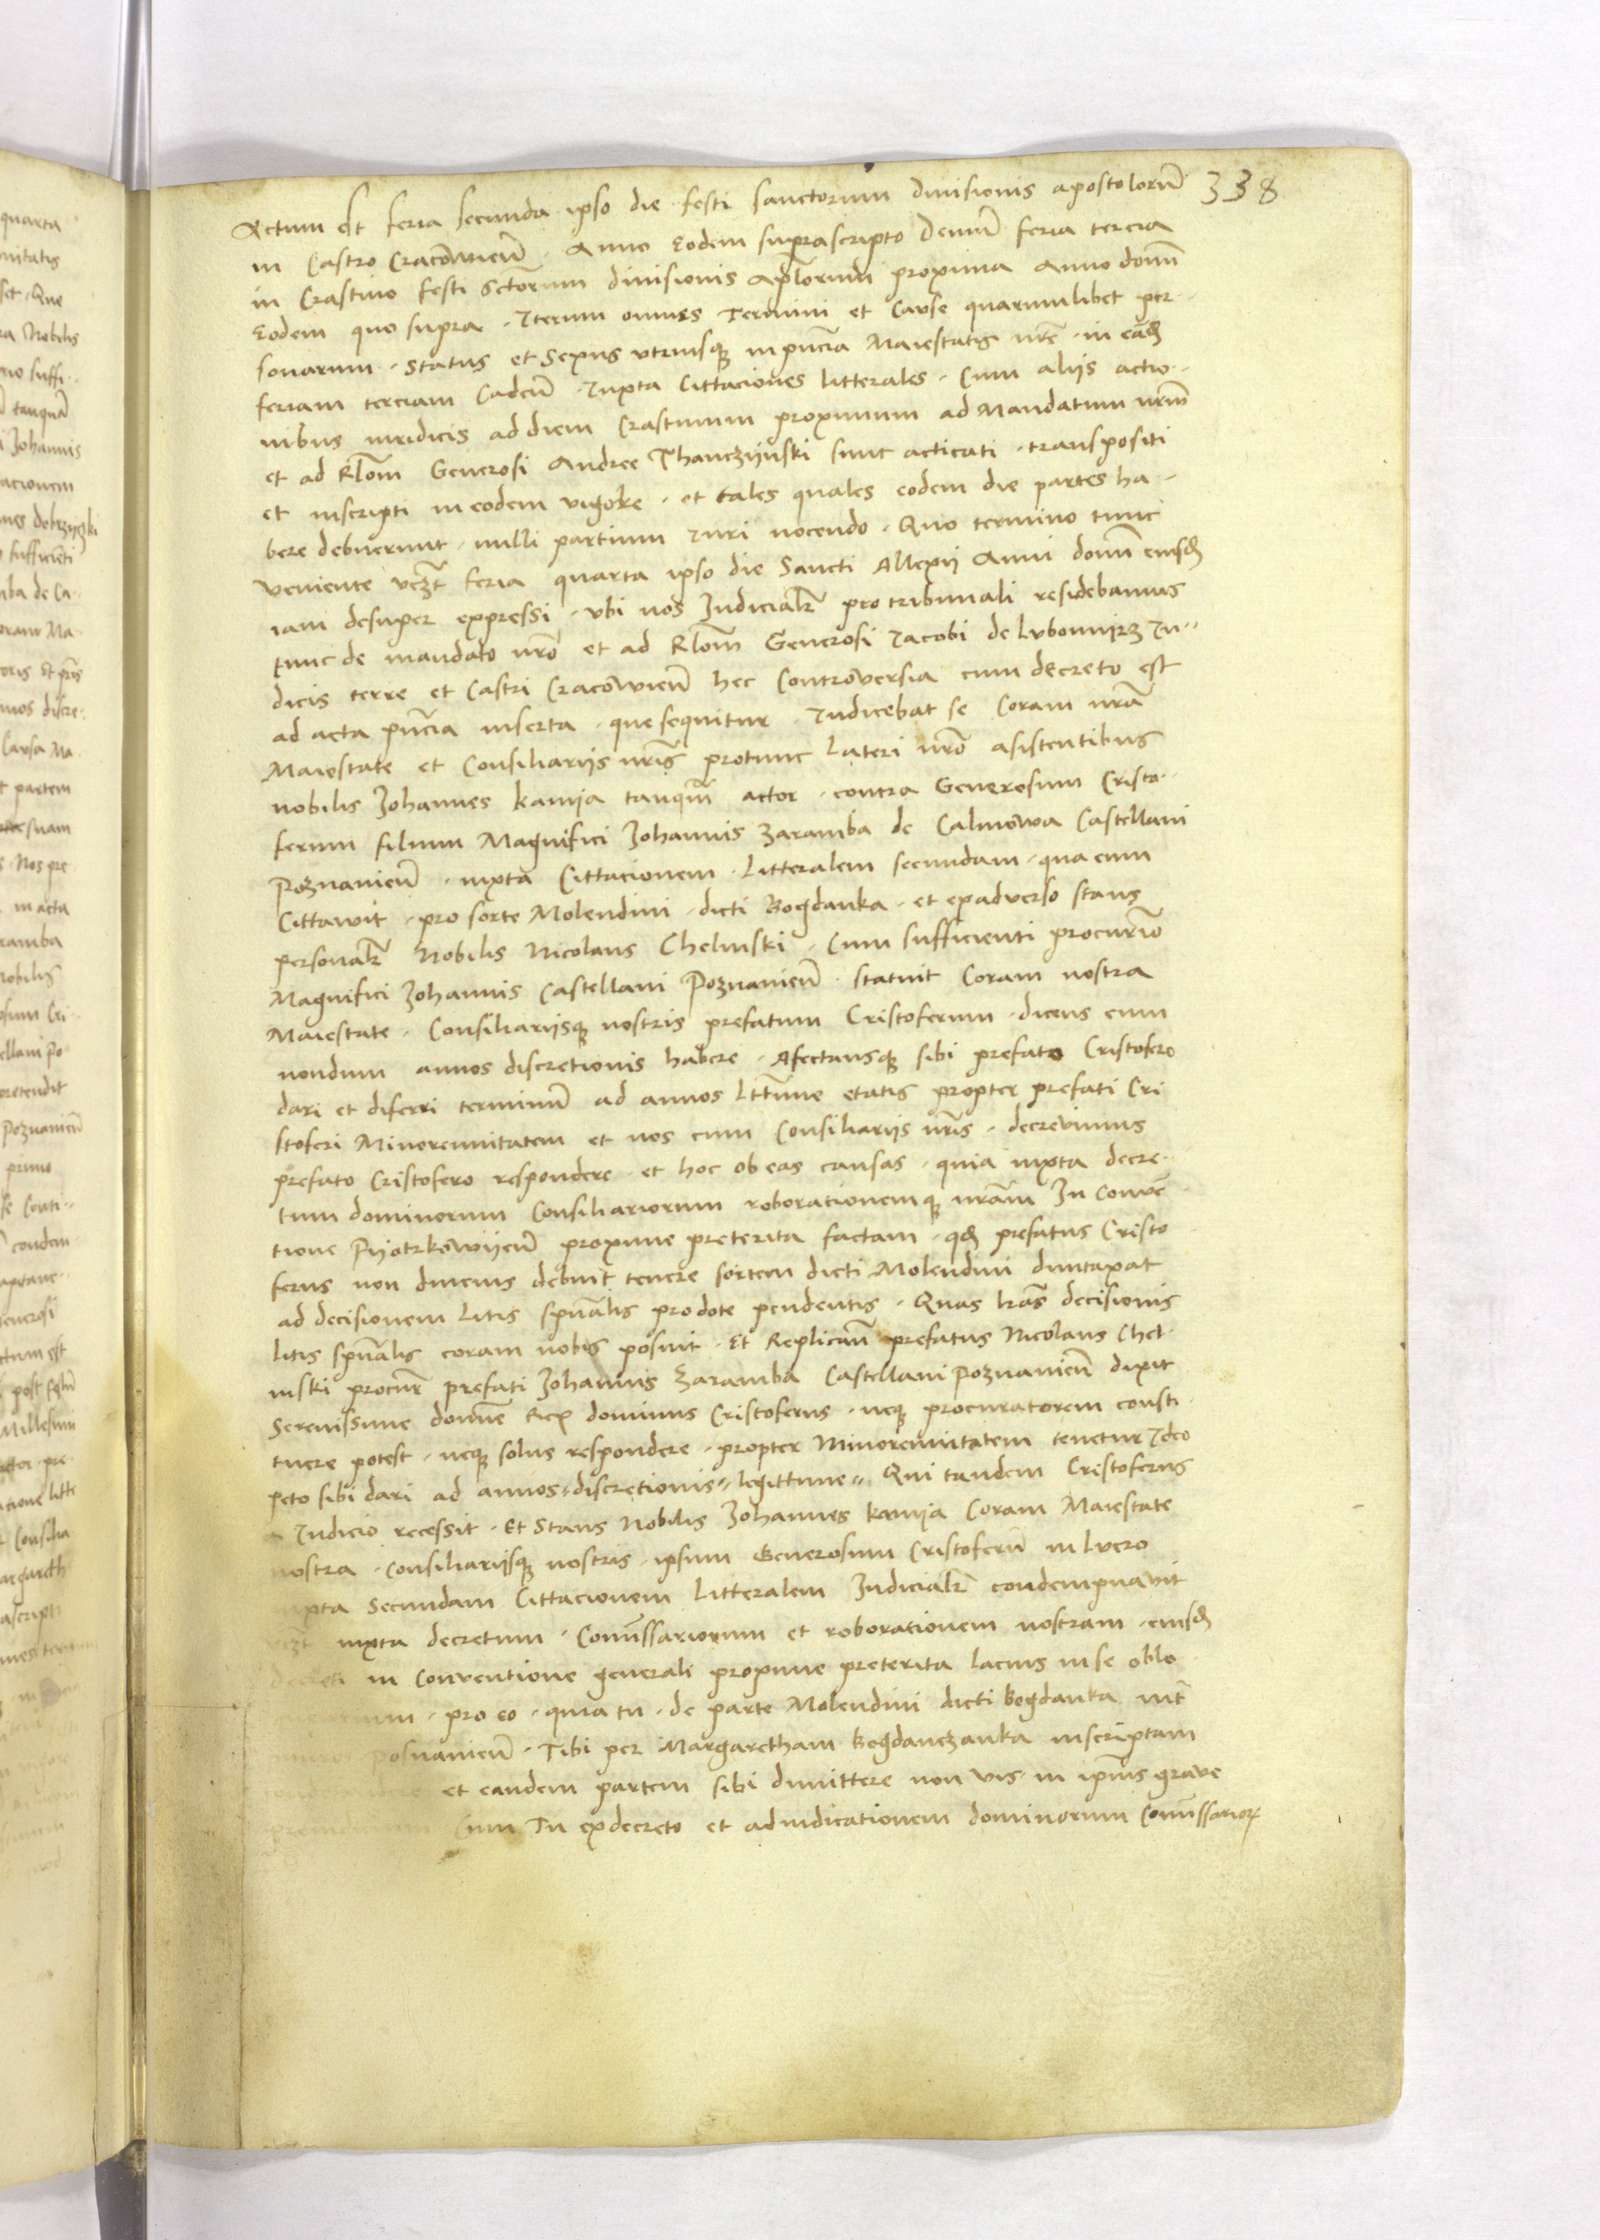 338
Actum est feria secunda ipso die festi sanctorum divisionis apostolorum̄
in Castro Cracowien̄ . Anno Eodem suprascripto Demum̄ feria tercia
in Crastino festi Sctōrum divisionis Aplōrum proxima Anno domī
Eodem quo supra . Iterum omnes Termini et Cause quarumlibet per-
sonarum . Status et Sexus utriusq̨ in pn̄cia Maiestatis nrē . in eād̨
feriam terciam Caden̄ . Iuxta Cittaciones litterales . Cum aliis actio-
nibus iuridicis ad diem Crastinum proximum ad Mandatum nrm̄
et ad Rlōm Generosi Andree Thanczijnski sunt acticati . transpositi
et inscripti in eodem vigore . et tales quales eodem die partes ha-
bere debuerunt . nulli partium Iuri nocendo . Quo termino tunc
veniente vcz̄t feria quarta ipso die Sancti Allexii Anni domī eiusd̨
iam desuper expressi . ubi nos Iudicialr̄ pro tribunali residebamus
tunc de mandato nrō et ad Rlōm Generosi Iacobi de Lubomijrz Iu-
dicis terre et Castri Cracowien̄ hec Controversia cum decreto est
ad acta pn̄cia inserta . que sequitur . Iudicebat se Coram nrā
Maiestate et Consiliariis nrīs protunc Lateri nrō asistentibus
nobilis Iohannes kamija tanqm̄ actor . contra Generosum Crista-
ferum filium Magnifici Iohannis Zaramba de Calinowa Castellani
Poznanien̄ . iuxta Cittacionem . Litteralem secundam . qua eum
Cittawit . pro sorte Molendini . dicti Bogdanka . et exadverso stans
personalr̄ Nobilis Nicolaus Chelmski . Cum sufficienti procurīo
Magnifici Iohannis Castellani Poznanien̄ . statuit Coram nostra
Maiestate . Consiliariisq̨ nostris prefatum Cristoferum . dicens eum
nondum annos discretionis habere . Afectansq̨ sibi prefato Cristofero
dari et diferri terminum̄ ad annos Lttīme etatis propter prefati Cri
stoferi Minorennitatem et nos cum Consiliariis nrīs . decrevimus
prefato Cristofero respondere . et hoc ob eas causas . quia iuxta decre-
tum dominorum Consiliariorum roborationemq̨ nrām In Conven̄
tione Pijotrkowijen̄ proxime preterita factam . qd̨ prefatus Cristo
ferus non diucius debuit tenere sortem dicti Molendini duntaxat
ad decisionem Litis spūalis pro dote pendentis . Quas lrās decisionis
litis spūalis coram nobis posuit . Et Replican̄ prefatus Nicolaus Chel-
mski procur̄ prefati Iohannis Zaramba Castellani Poznanien̄ dixit
Serenissime domīe Rex dominus Cristoferus . neq̨ procuratorem consti
tuere potest . neq̨ solus respondere . propter Minorennitatem tenetur Ideo
peto sibi dari ad annos discretionis legittime Qui tandem Cristoferus
a Iudicio recessit . Et Stans Nobilis Iohannes kamija Coram Maiestate
nostra . Consiliariisq̨ nostris . ipsum Generosum Cristoferum̄ in lucro
iuxta Secundam Cittacionem Litteralem Iudicialr̄ condempnavit
vcz̄t iuxta decretum . Comīssariorum et roborationem nostram . eiusd̨
decreti in Conventione generali proxime preterita lacius in se oblo
pro eo . quia tu . de parte Molendini dicti bogdanka int̄
Posnanien̄ . Tibi per Margaretham Bogdanczanka inscriptam
et eandem partem sibi dimittere non vis in ipīus grave
Cum Tu ex decreto et adiudicationem dominorum Comīssarior̨